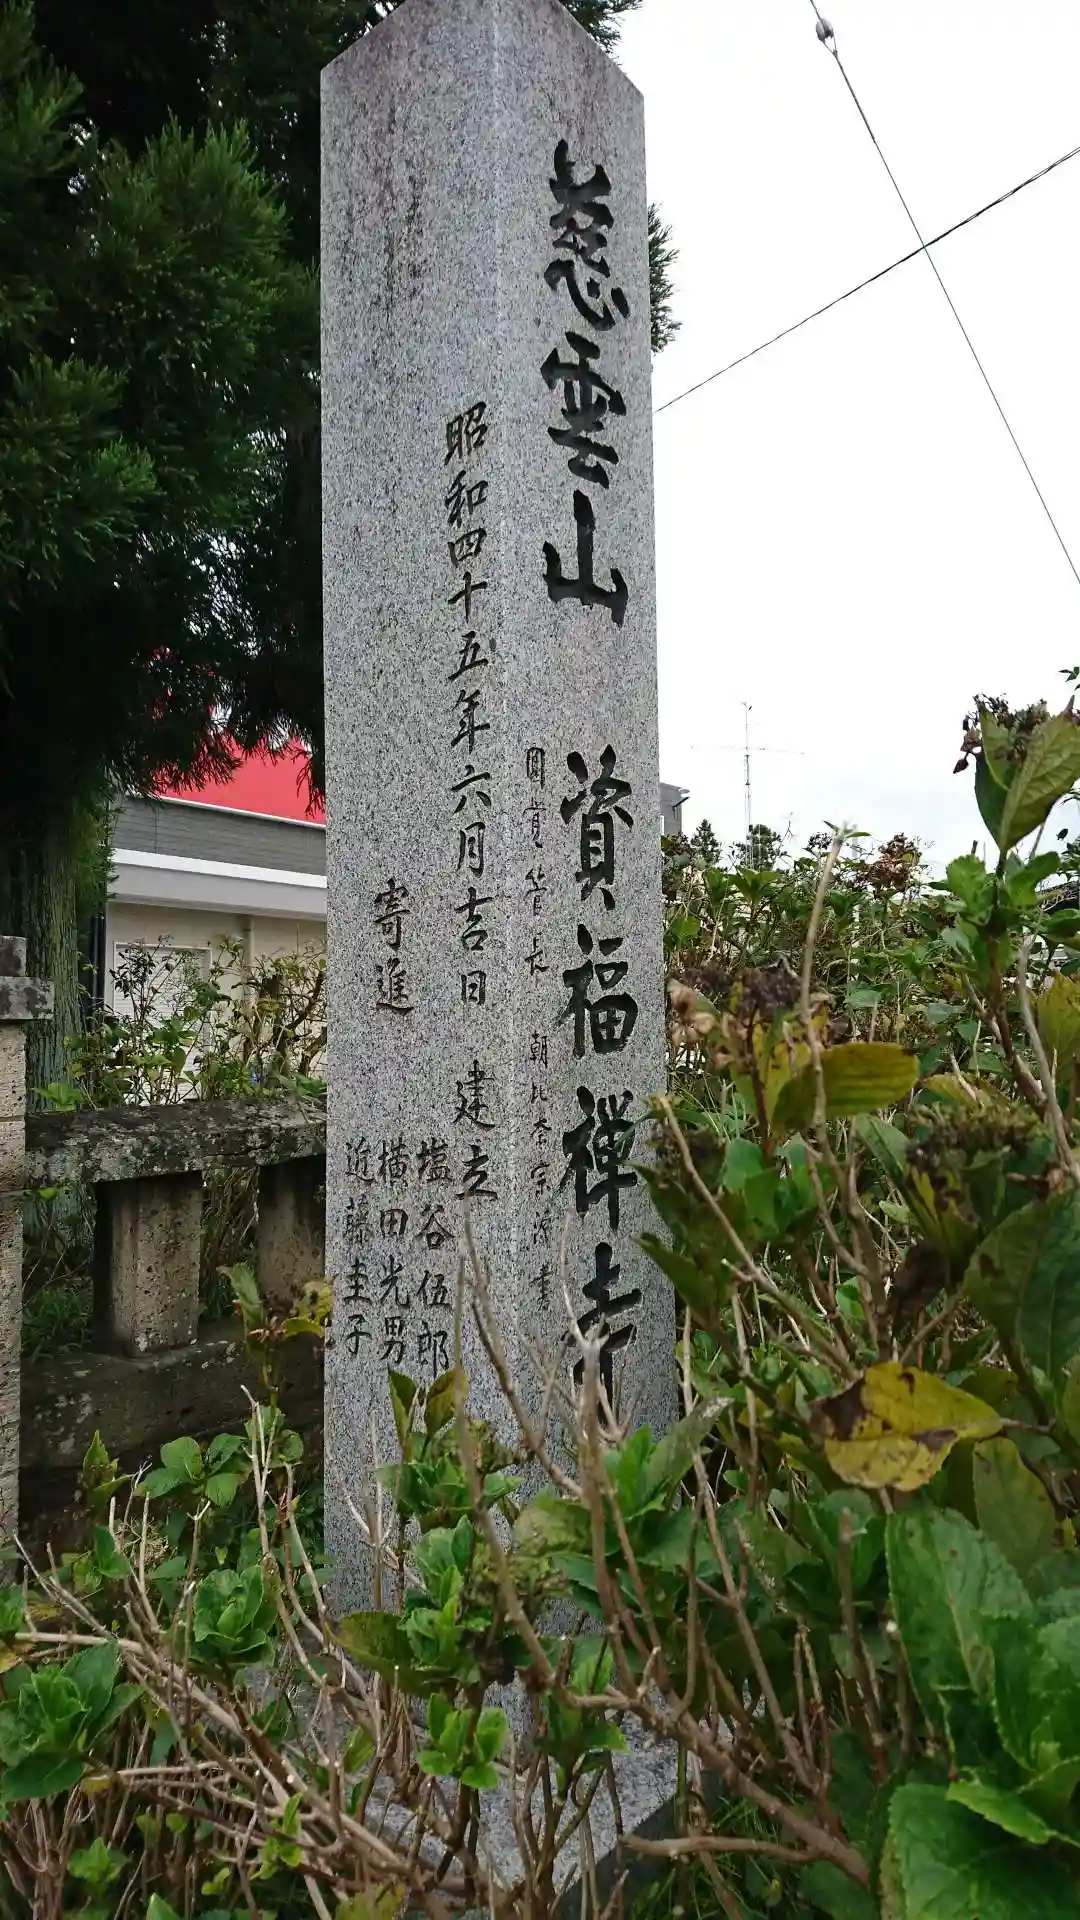 慈雲山 資福禅寺
圓覚管長 朝比奈宗源 書
昭和四十五年六月吉日 建立
寄進
塩谷伍郎
横田光男
近藤圭子